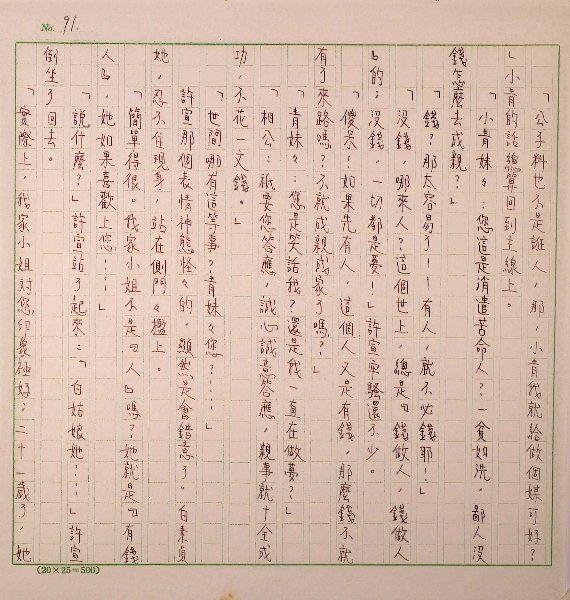 No. 91.
「公子料也不是誰人，那，小青我就給做個媒可好？
」小青的話總算回到主線上。
「小青妹々：您這是消遣苦命人？一貧如洗，鄙人沒
錢怎麼去成親？」
「錢？那太容易了！—有人，就不必錢耶！」
「沒錢，哪來人？這個世上，總是『錢做人，錢做人
』的；沒錢，一切都是憂！」許宣牢騷還不少。
「傻呆！如果先有人，這個人又是有錢，那麼錢不就
有了來路嗎？不就成親成家了嗎？」
「青妹々：您是笑話我？還是我一直在做夢？」
「相公：祇要您答應，誠心誠意答應，親事就十全成
功，不花一文錢。」
「世間哪有這等事？青妹々您？⋯⋯」
許宣那個表情神態怪々的，顯然是會錯意了。白素貞
她，忍不住現身，站在側門々檻上。
「簡單得很。我家小姐不是『人』嗎？她就是『有錢
人』，她如果喜歡上您⋯⋯」
「說什麼？」許宣站了起來：「白姑娘她？⋯⋯」許宣
倒坐了回去。
「實際上，我家小姐對您印象極好；二十一歲了，她
(20×25=500)